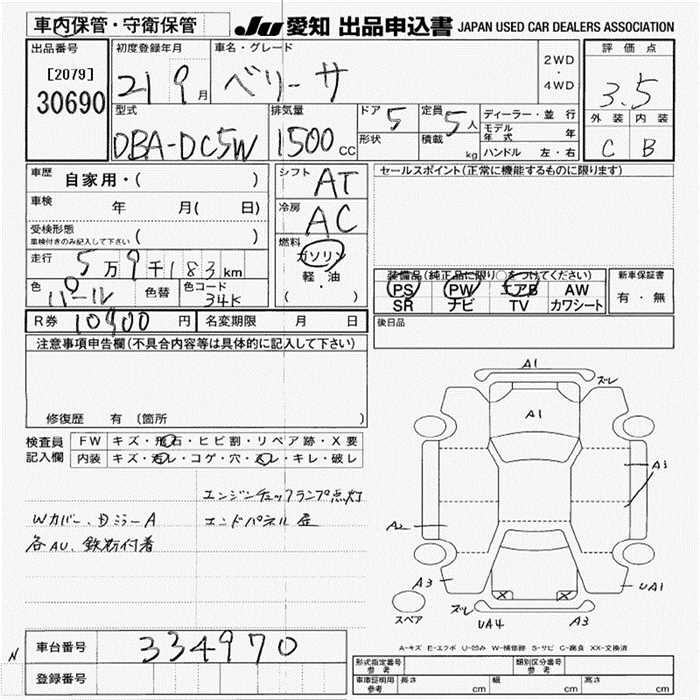 車内保管・守衛保管
JU 愛知 出品申込書 JAPAN USED CAR DEALERS ASSOCIATION
出品番号
[2079]
30690
初度登録年月
21 9月
車名・グレード
ベリーサ
2WD
・
4WD
評価点
3.5
外装 内装
C B
型式
DBA-DC5W
排気量
1500 CC
ドア 5
形状
定員 5人
積載 kg
ディーラー・並行
モデル年式 年
ハンドル 左・右
車歴 自家用・( )
車検 年 月( 日)
受検形態
車検付きのみ記入して下さい ( )
走行 5万9千183km
色 パール 色替
色コード 34K
シフト AT
冷房 AC
燃料
ガソリン
軽・油
( )
セールスポイント(正常に機能するものに限ります)
装備品(純正品に限り○をつけてください)
PS PW エアB AW
SR ナビ TV カワシート
新車保証書
有・無
R券 10900円 名変期限 月 日
後日品
注意事項申告欄(不具合内容等は具体的に記入して下さい)
修復歴 有 〔箇所
検査員
記入欄
FW キズ・飛石・ヒビ割・リペア跡・X要
内装 キズ・汚レ・コゲ・穴・スレ・キレ・破レ
エンジンチェックランプ点灯
Wカバー、Dミラー A エンドパネル歪
各AU、鉄粉付着
A1
ズレ
A1
A3
A2
A3
UA1
X X
ズレ
UA4
A3
スペア
A-キズ E-エクボ U-凹み W-補修跡 S-サビ C-腐食 XX-交換済
N
車台番号 334970
登録番号
形式指定番号
参考
類別区分番号
参考
車庫証明用
参考
長さ cm 幅 cm 高さ cm